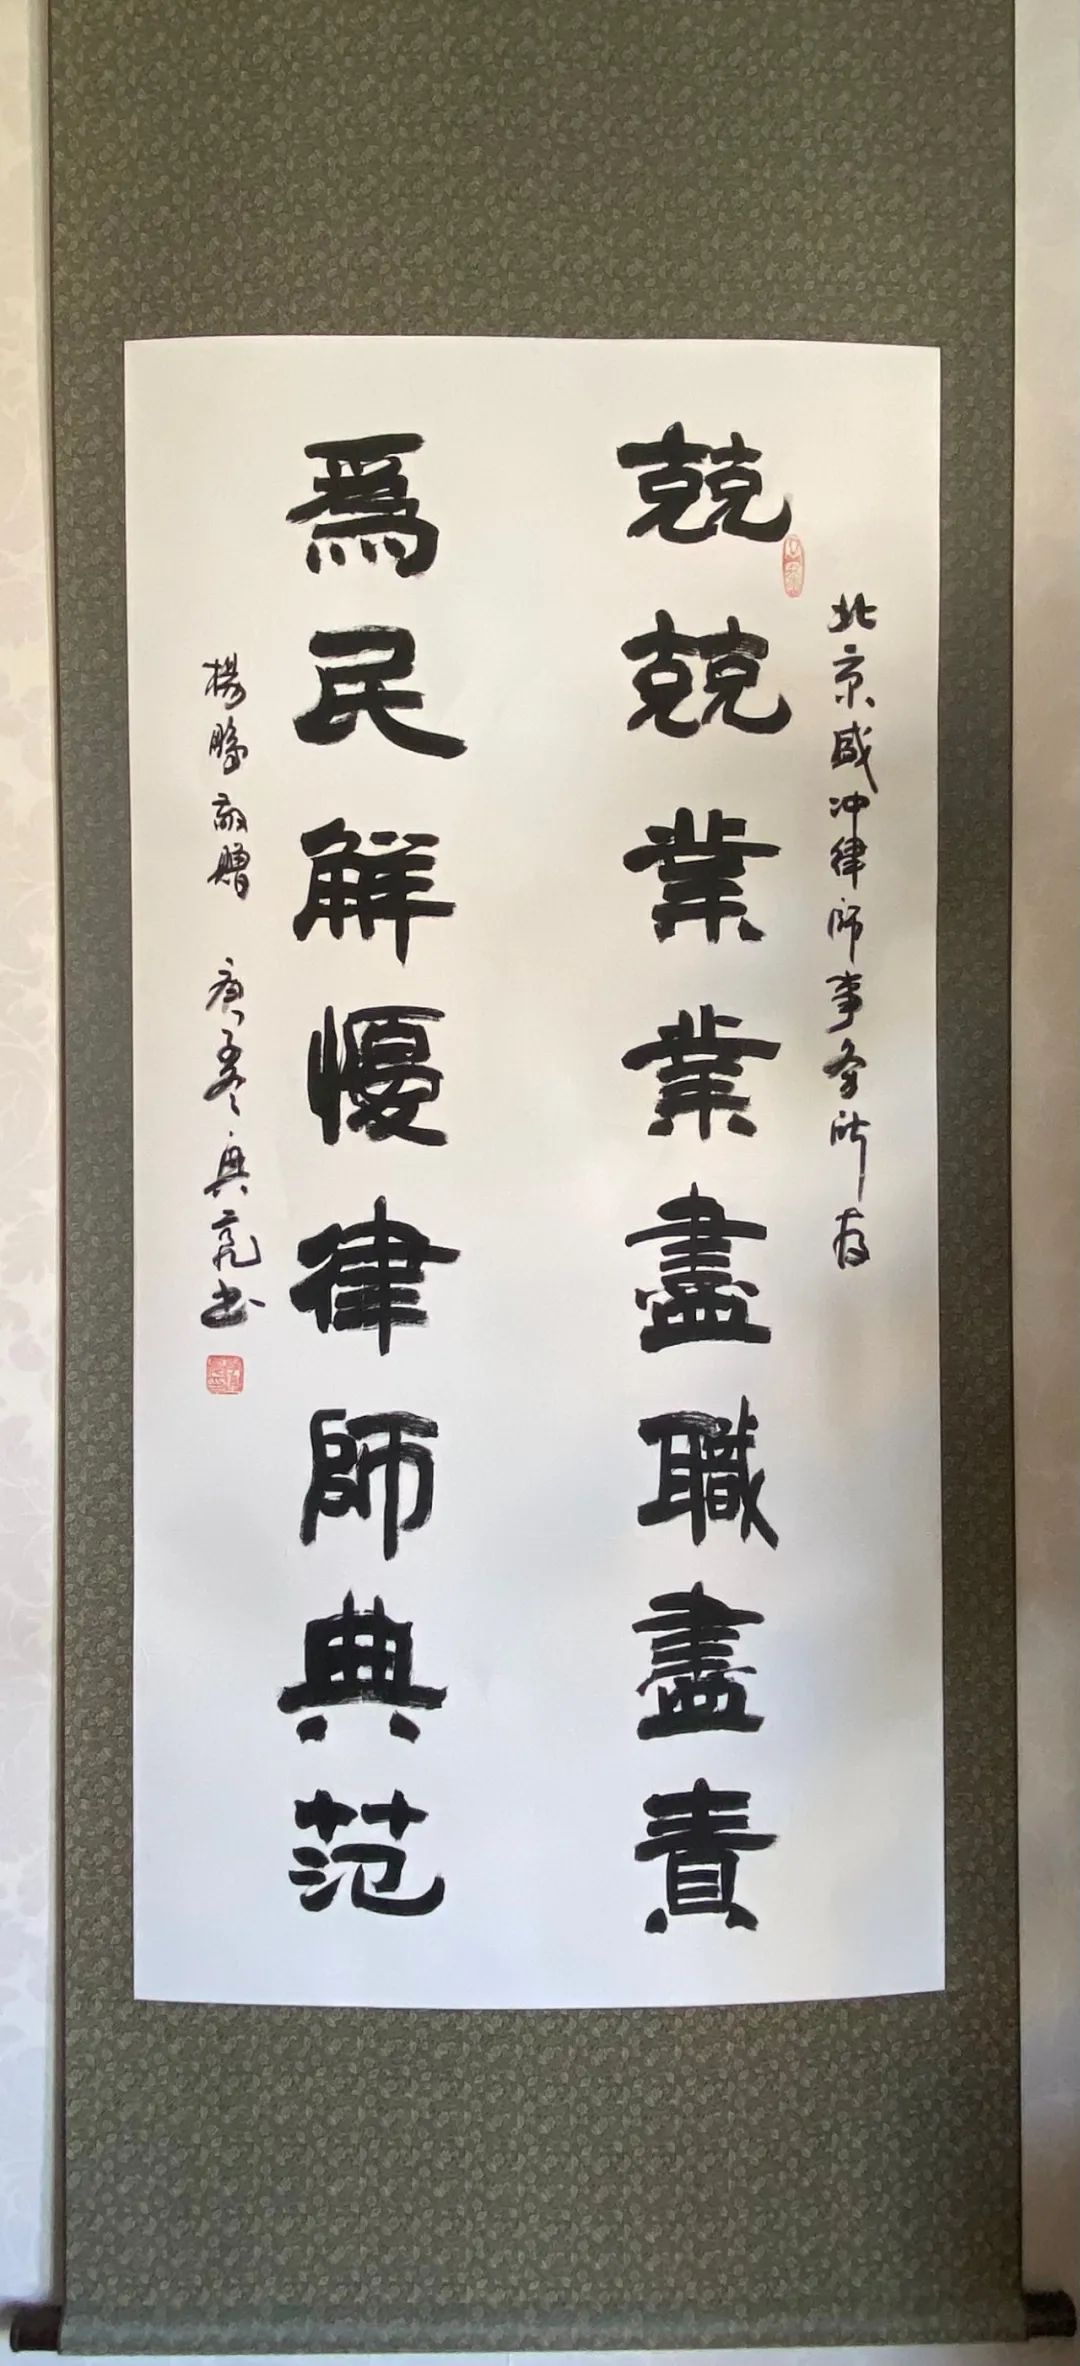 北京咸冲律师事务所存
兢兢業業盡職盡責
爲民解憂律師典范
楊鵬敬贈 庚子冬 興亮书